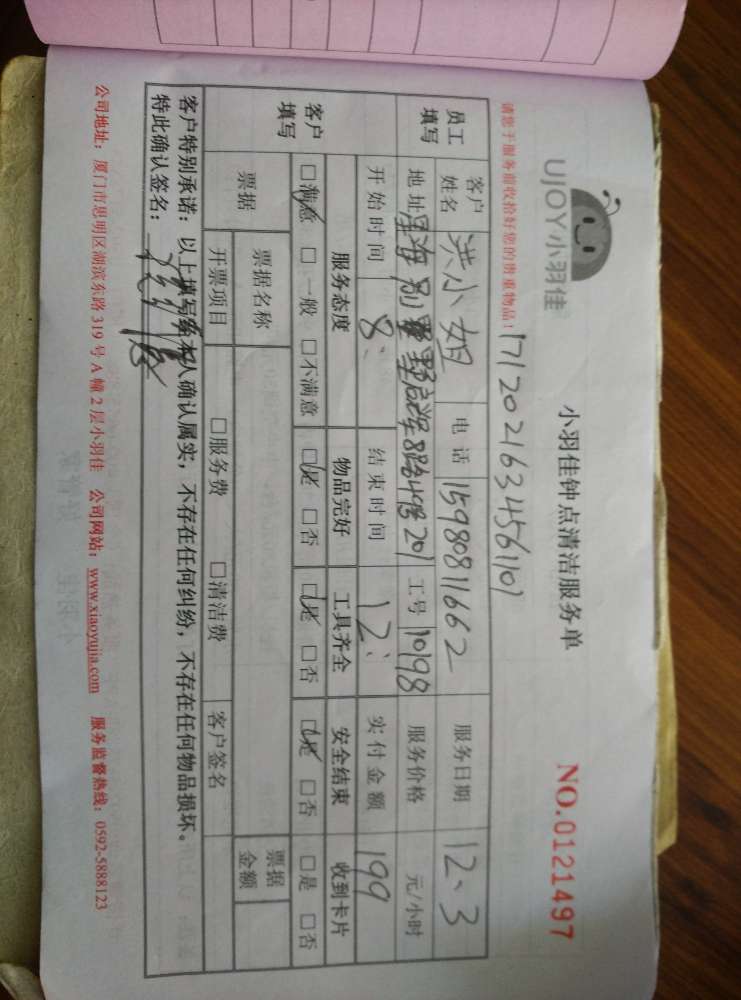 UJOY小羽佳
小羽佳钟点清洁服务单
NO.0121497
请您于服务前收拾好您的贵重物品!
171202163456110
员工填写
客户姓名 洪小姐 电话 15980811662 服务日期 12、3
地址 8路49号201 工号 10198 服务价格 元/小时
开始时间 8: 结束时间 12: 实付金额 199
客户填写
服务态度 物品完好 工具齐全 安全结束 收到卡片
□满意 □一般 □不满意 □是 □否 □是 □否 □是 □否 □是 □否
票据 票据名称 票据金额
开票项目 □服务费 □清洁费 客户签名
客户特别承诺：以上填写经本人确认属实，不存在任何纠纷，不存在任何物品损坏。
特此确认签名：
公司地址：厦门市思明区湖滨东路319号A幢2层小羽佳 公司网站：www.xiaoyujia.com 服务监督热线：0592-5888123